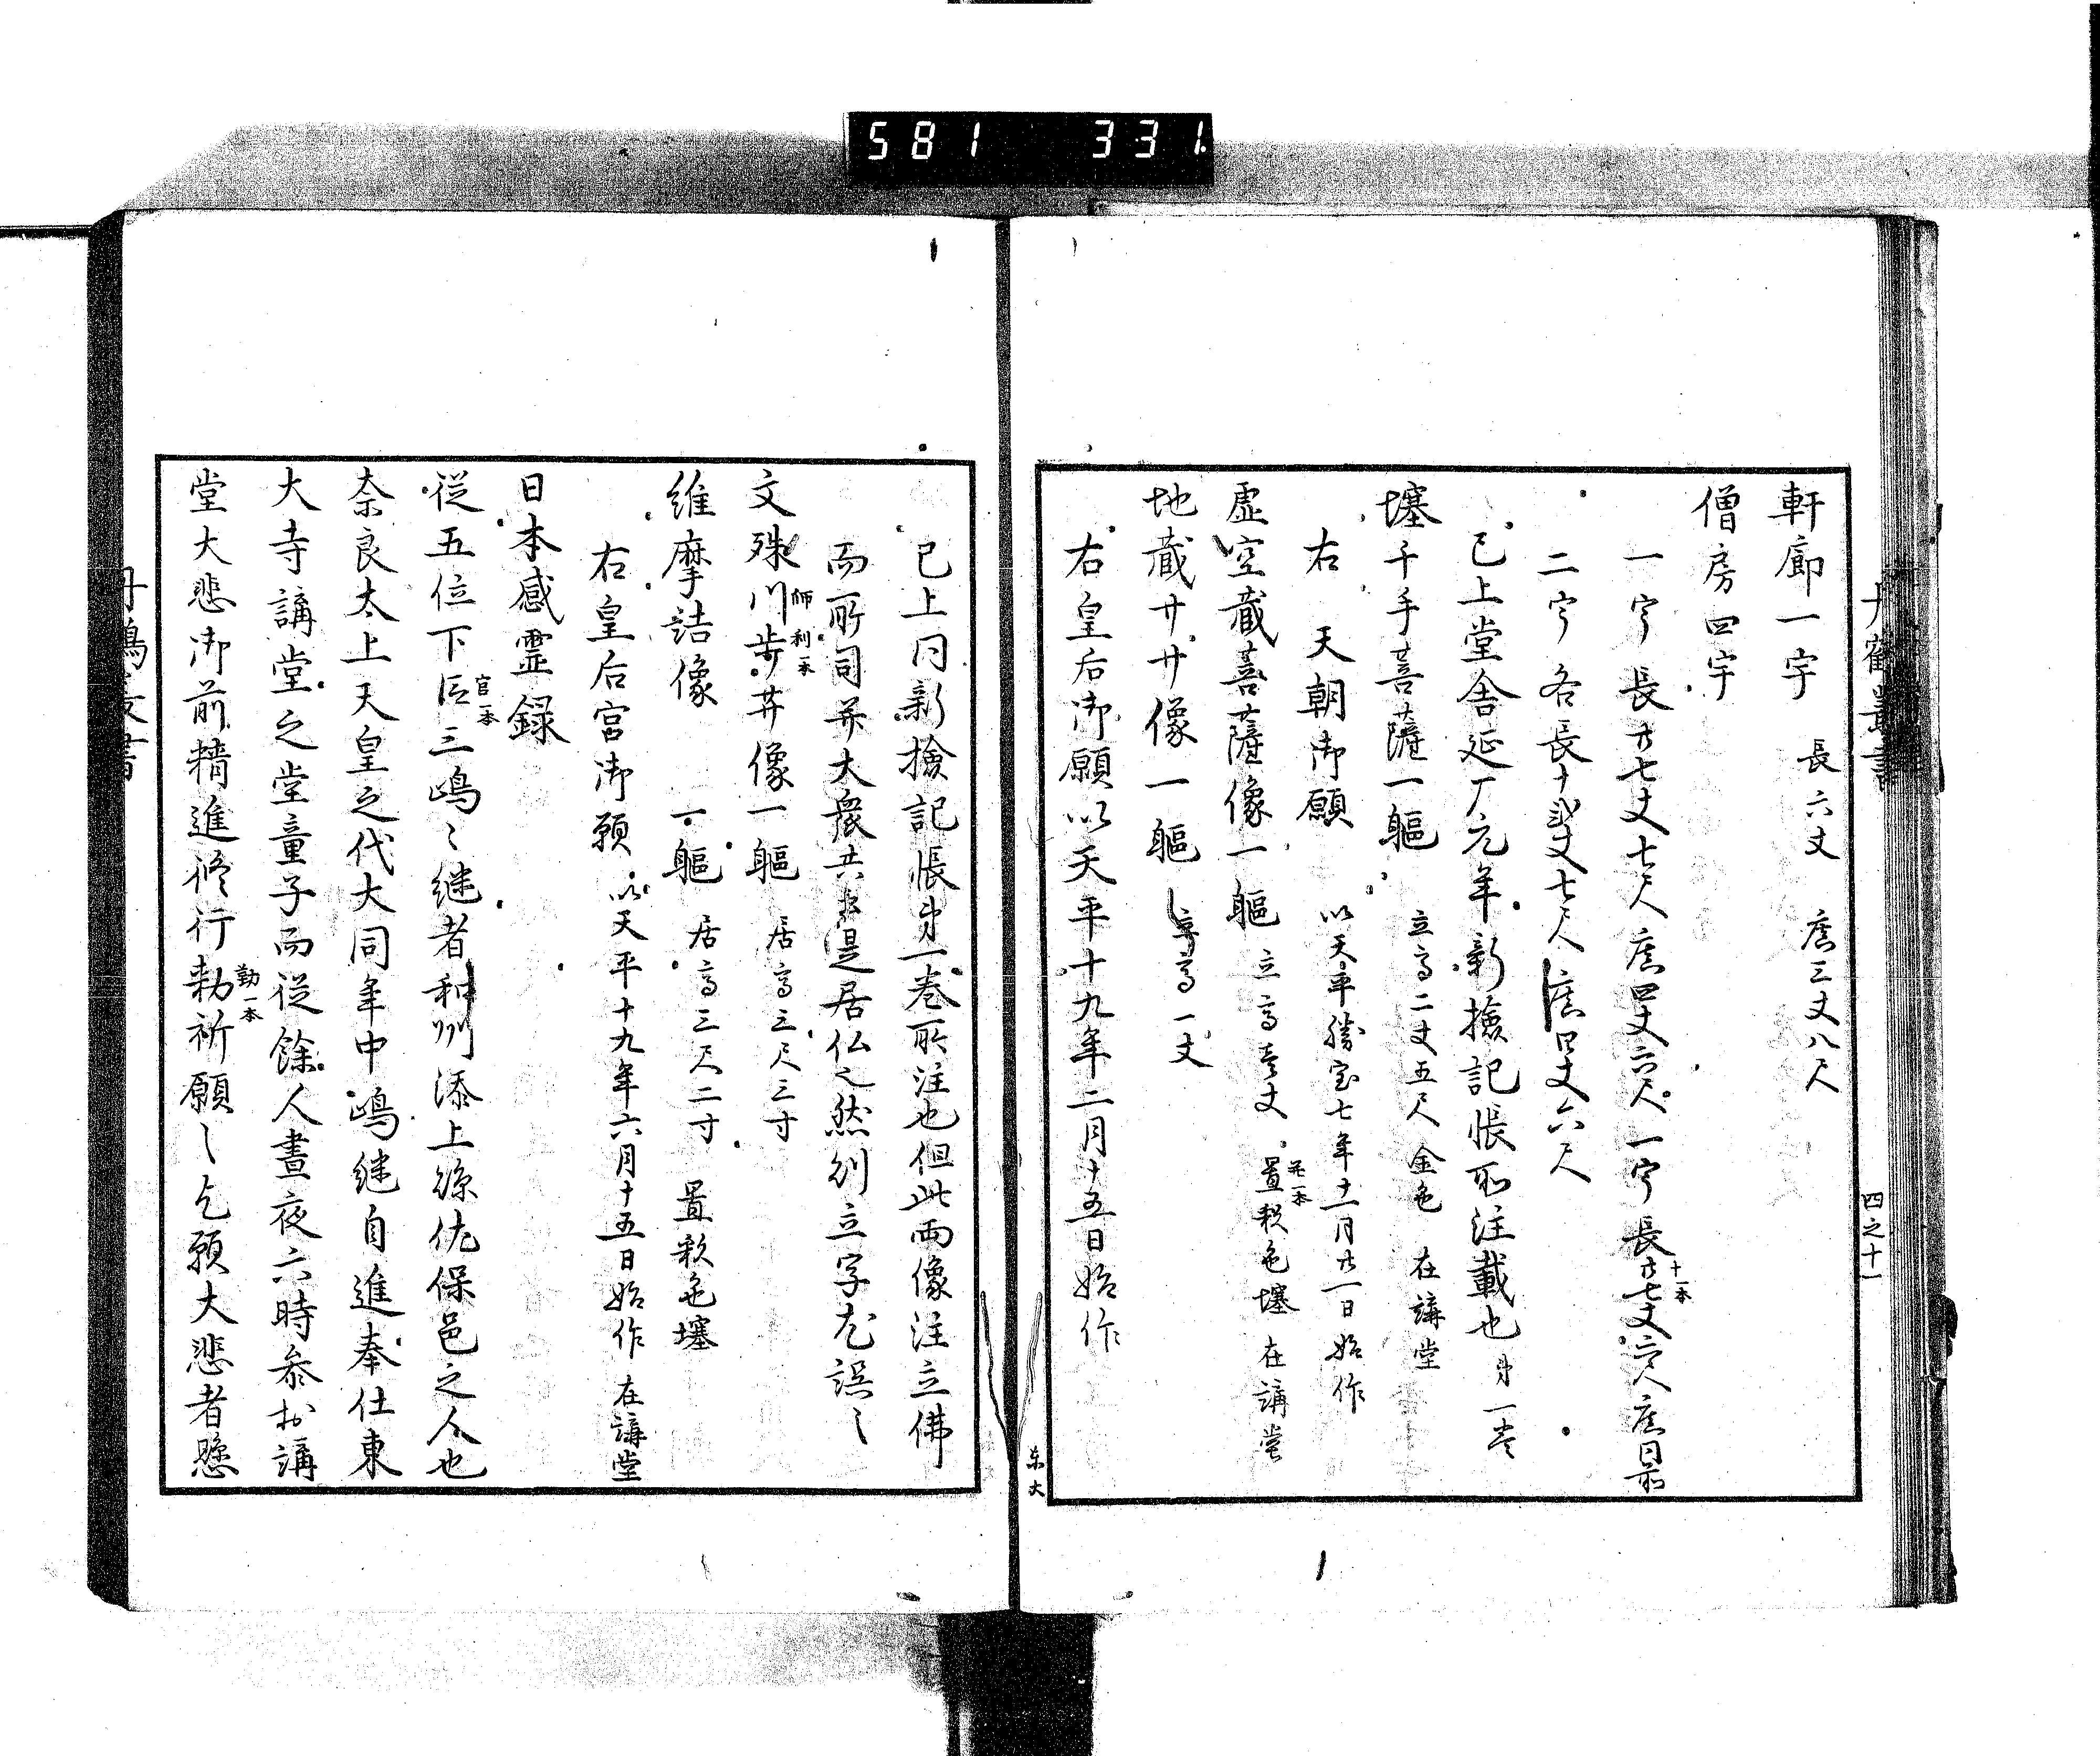 581 331
丹鶴叢書
四之十一
軒廊一宇 長六丈 庿三丈八尺
僧房四宇
一宇 長廿七丈七尺 庿四丈六尺 一宇 長廿七丈六尺 庿同前
十一本
二宇 各長十弐丈七尺 庿四丈六尺
已上堂舎延厂元年新撿記帳所注載也 第一巻
塞千手菩薩一軀 立高二丈五尺 金色 在講堂
右 天朝御願 以天平勝宝七年十一月廿一日始作
虚空蔵菩薩像一軀 立高壱丈 並一本 置彩色塞 在講堂
地蔵廾像一軀 立高一丈
右皇后御願以天平十九年二月十五日始作
东大
已上同新撿記帳第一巻所注也但此両像注立佛
而所司并大衆共是居仏之然則立字尤誤〻
文殊川歩廾像一軀 居高三尺三寸
師利一本
維摩詰像 一軀 居高三尺二寸 置彩色塞
右皇后宮御願 以天平十九年六月十五日始作 在講堂
日本感霊録
従五位下臣三嶋〻継者和州添上縣佐保邑之人也
官一本
奈良太上天皇之代大同年中嶋継自進奉仕東
大寺講堂之堂童子而従餘人晝夜六時参於講
堂大悲御前精進修行勅祈願〻乞願大悲者愍
勤一本